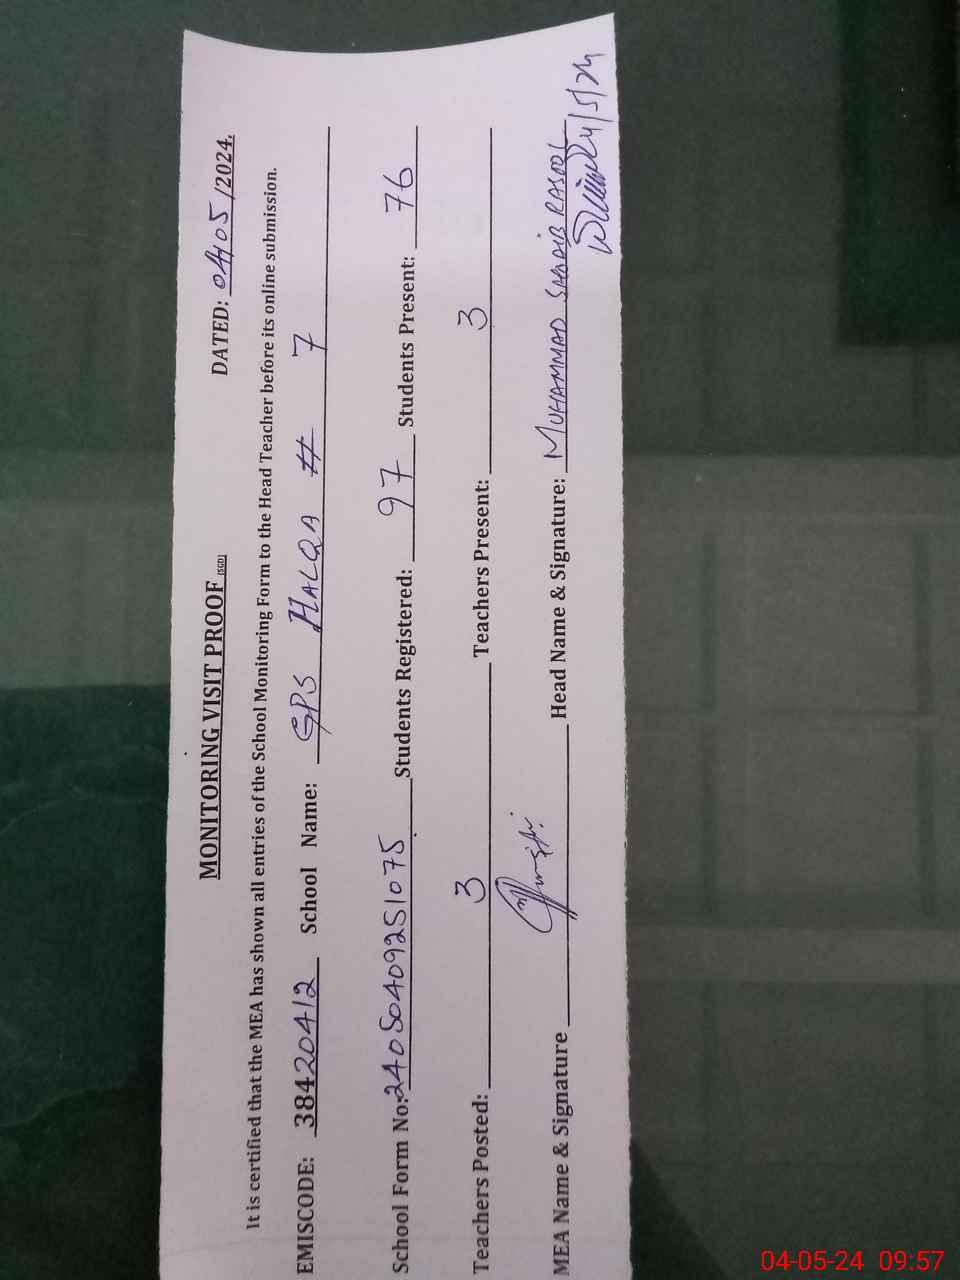 MONITORING VISIT PROOF (SGD)
DATED: 04/05/2024.
It is certified that the MEA has shown all entries of the School Monitoring Form to the Head Teacher before its online submission.
EMISCODE: 38420412 School Name: GPS HALQA # 7
School Form No: 24050409251075 Students Registered: 97 Students Present: 76
Teachers Posted: 3 Teachers Present: 3
MEA Name & Signature Head Name & Signature: MUHAMMAD RASOOL
4/5/24
04-05-24 09:57